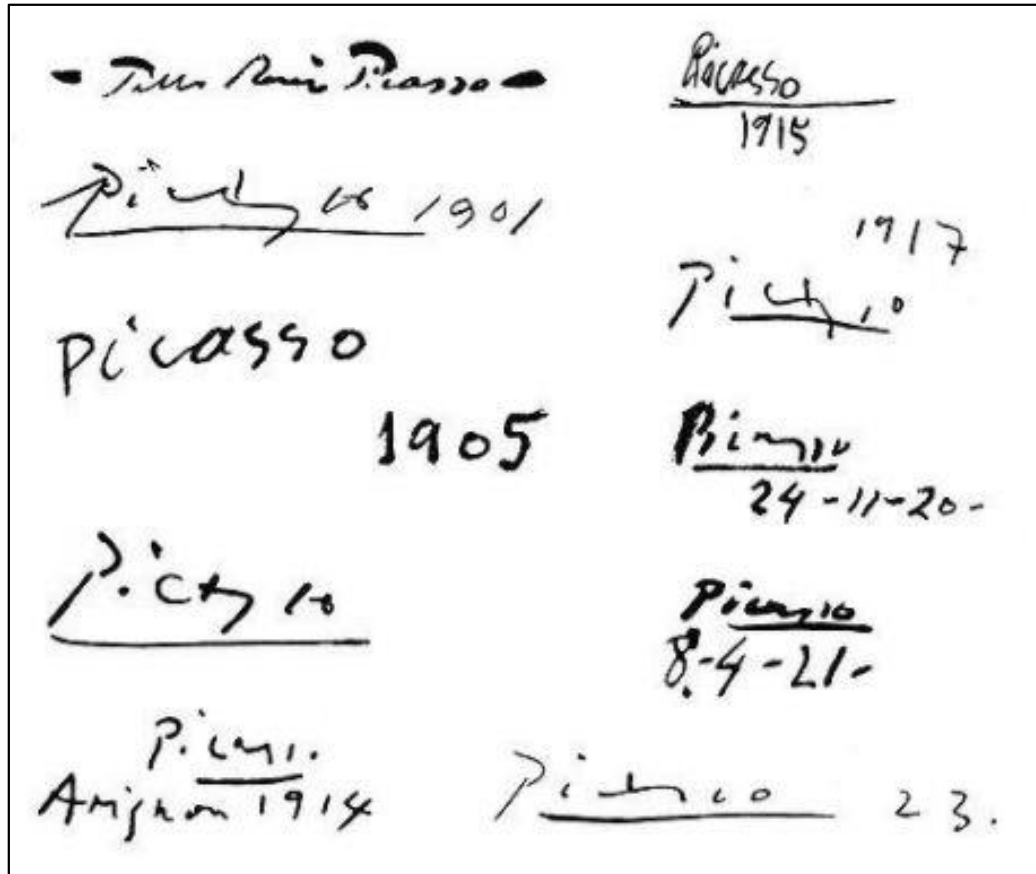 - Pablo Ruiz Picasso -
Picasso 1901
Picasso
1905
Picasso
Picasso
Avignon 1914
Picasso
1915
1917
Picasso
Picasso
24-11-20-
Picasso
8.-4-21-
Picasso 23.